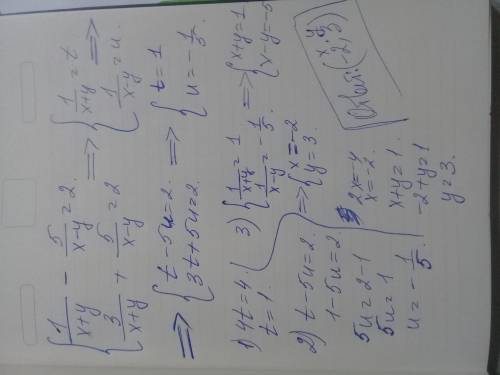 { 1/(x+y) - 5/(x-y) = 2. => { 1/(x+y) = t =>
{ 3/(x+y) + 5/(x-y) = 2 { 1/(x-y) = u.
=> { t-5u=2. => { t=1
{ 3t+5u=2. { u=-1/5.
1) 4t=4.
t=1.
2) t-5u=2.
1-5u=2
5u=2-1
5u=1
u=-1/5.
3) { 1/(x+y) = 1 => { x+y=1
{ 1/(x-y) = -1/5. { x-y=-5
=> { x=-2
{ y=3.
2x=-4
x=-2.
x+y=1.
-2+y=1
y=3.
x y
Ответ: (-2; 3)